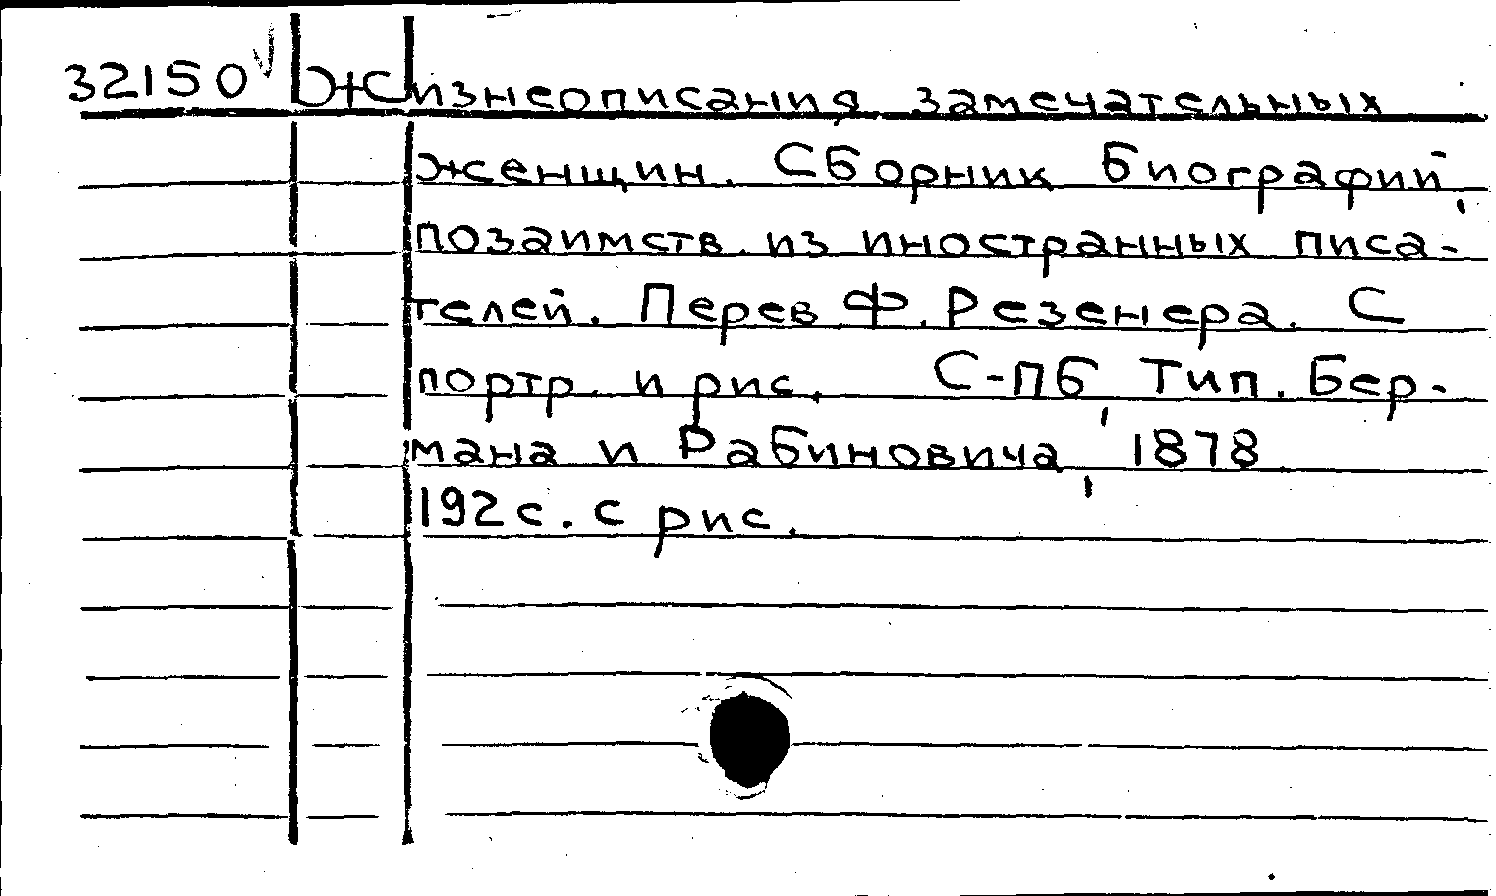 32150 Жизнеописания замечательных
женщин. Сборник биографий,
позаимств. из иностранных писа-
телей. Перев Ф. Резенера. С
портр. и рис. С-Пб, Тип. Бер-
мана и Рабиновича, 1878
192 с. с рис.